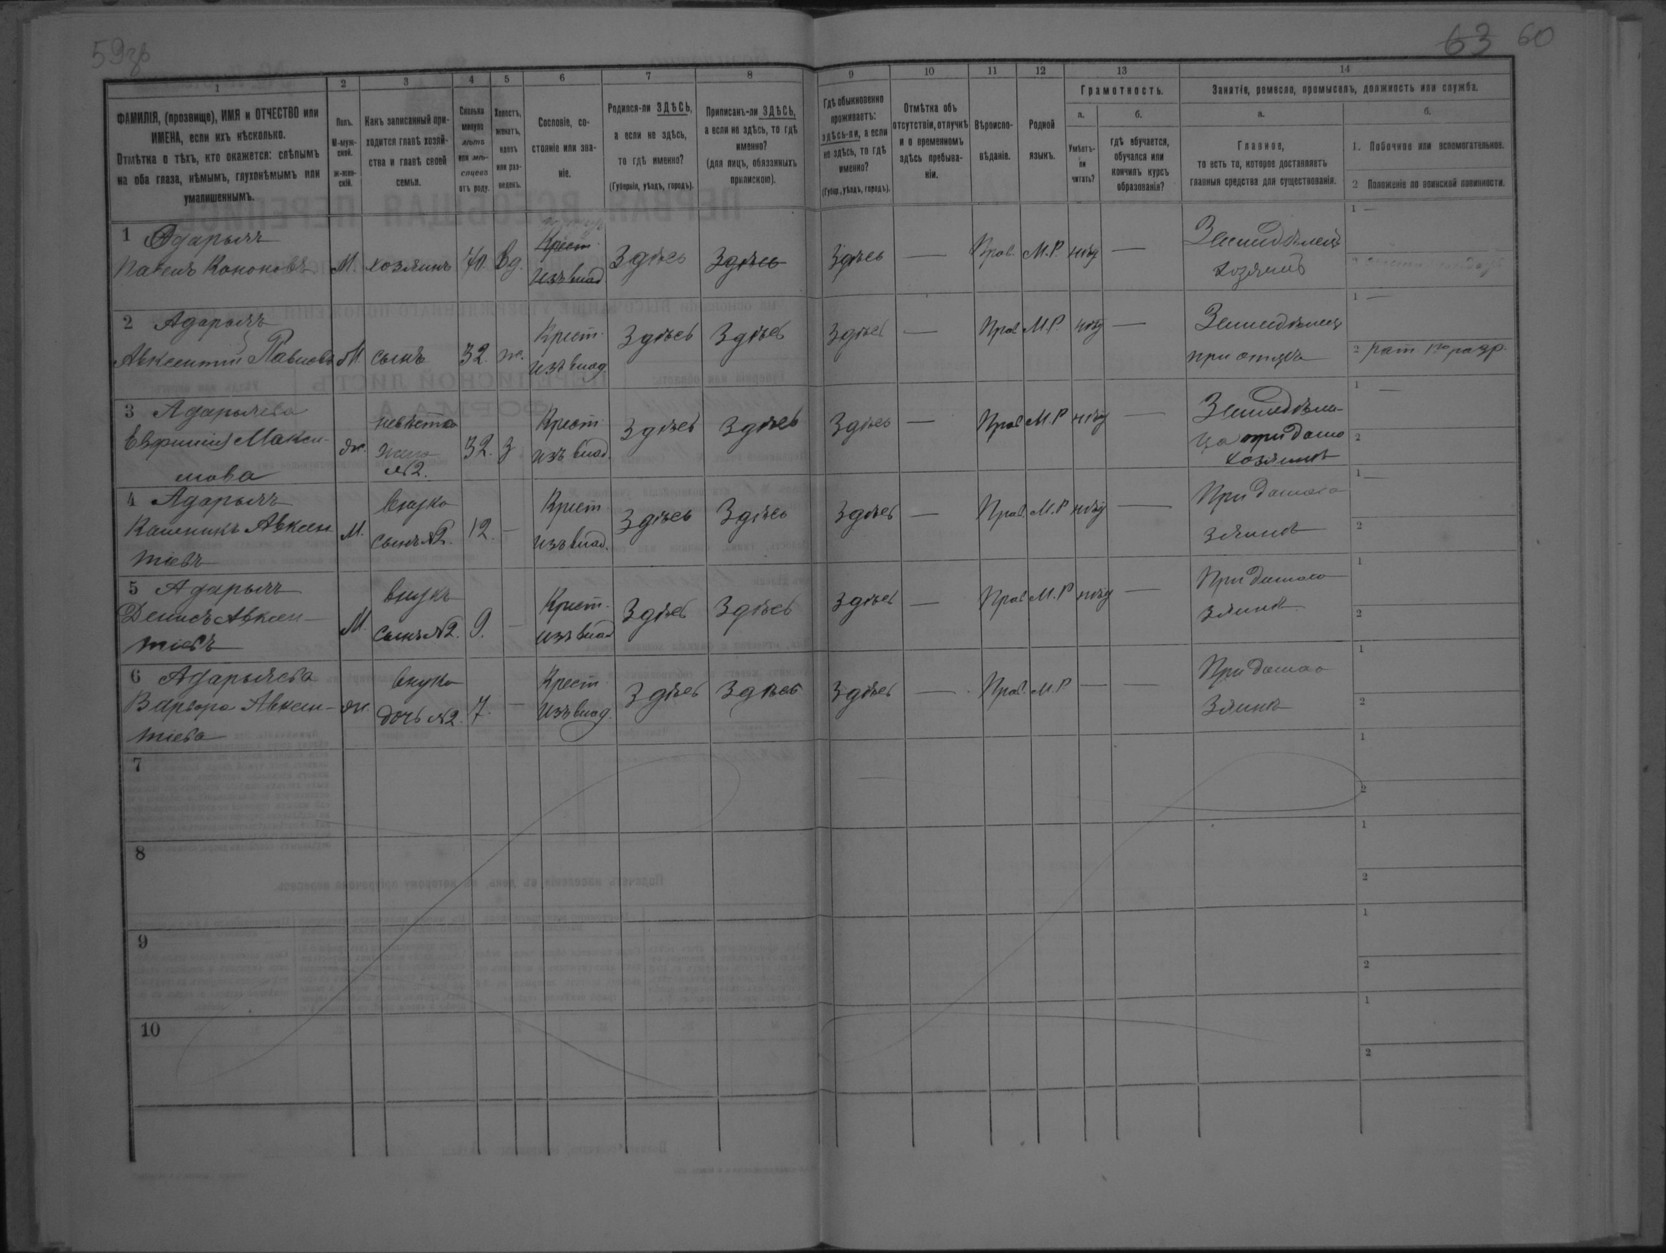 59 об
63 60
1 2 3 4 5 6 7 8 9 10 11 12 13 14
ФАМИЛІЯ, (прозвище), ИМЯ и ОТЧЕСТВО или
ИМЕНА, если ихъ нѣсколько.
Отмѣтка о тѣхъ, кто окажется: слѣпымъ
на оба глаза, нѣмымъ, глухонѣмымъ или
умалишеннымъ.
Полъ.
М-муж-
ской.
ж-жен-
скій.
Какъ записанный при-
ходится главѣ хозяй-
ства и главѣ своей
семьи.
Сколько
минуло
лѣтъ
или мѣ-
сяцевъ
отъ роду.
Холостъ,
женатъ,
вдовъ
или раз-
веденъ.
Сословіе, со-
стояніе или зва-
ніе.
Родился-ли ЗДѢСЬ,
а если не здѣсь,
то гдѣ именно?
(Губернія, уѣздъ, городъ).
Приписанъ-ли ЗДѢСЬ,
а если не здѣсь, то гдѣ
именно?
(для лицъ, обязанныхъ
припискою).
Гдѣ обыкновенно
проживаетъ:
здѣсь-ли, а если
не здѣсь, то гдѣ
именно?
(Губер., уѣздъ, городъ).
Отмѣтка объ
отсутствіи, отлучкѣ
и о временномъ
здѣсь пребыва-
ніи.
Вѣроиспо-
вѣданіе.
Родной
языкъ.
Грамотность.
а.
Умѣетъ-
ли
читать?
б.
гдѣ обучается,
обучался или
кончилъ курсъ
образованія?
Занятіе, ремесло, промыселъ, должность или служба.
а.
Главное,
то есть то, которое доставляетъ
главныя средства для существованія.
б.
1. Побочное или вспомогательное.
2 Положеніе по воинской повинности.
1 Адарычъ
Павелъ Кононовъ М. хозяинъ вд. Крест. изъ влад. Здѣсь Здѣсь Здѣсь — Прав. М.Р. нѣтъ — Земледѣлецъ хозяинъ 1 —
2 Адарычъ
Авксентій Павловъ М сынъ 32. ж. Крест. изъ влад. Здѣсь Здѣсь Здѣсь — Прав М.Р. нѣтъ — Земледѣлецъ при отцѣ 1 — 2 рат. 1го разр.
3 Адарычева
Евфимія Макси-
мова ж. невѣстка жена №2. 32. з Крест. изъ влад. Здѣсь Здѣсь Здѣсь — Прав М.Р нѣтъ — 1 — 2
4 Адарычъ
Авксен-
тіевъ М. внукъ сынъ №2. 12. — Крест. изъ влад. Здѣсь Здѣсь Здѣсь — Прав. М.Р нѣтъ — 1 — 2
5 Адарычъ
Денисъ Авксен-
тіевъ М внукъ сынъ №2. 9. — Крест. изъ влад Здѣсь Здѣсь Здѣсь — Прав М.Р нѣтъ — 1 2
6 Адарычева
Варвара Авксен-
тіева ж. внука дочь №2. 7. — Крест. изъ влад. Здѣсь Здѣсь Здѣсь — Прав. М.Р — — 1 2
7 1 2
8 1 2
9 1 2
10 1 2